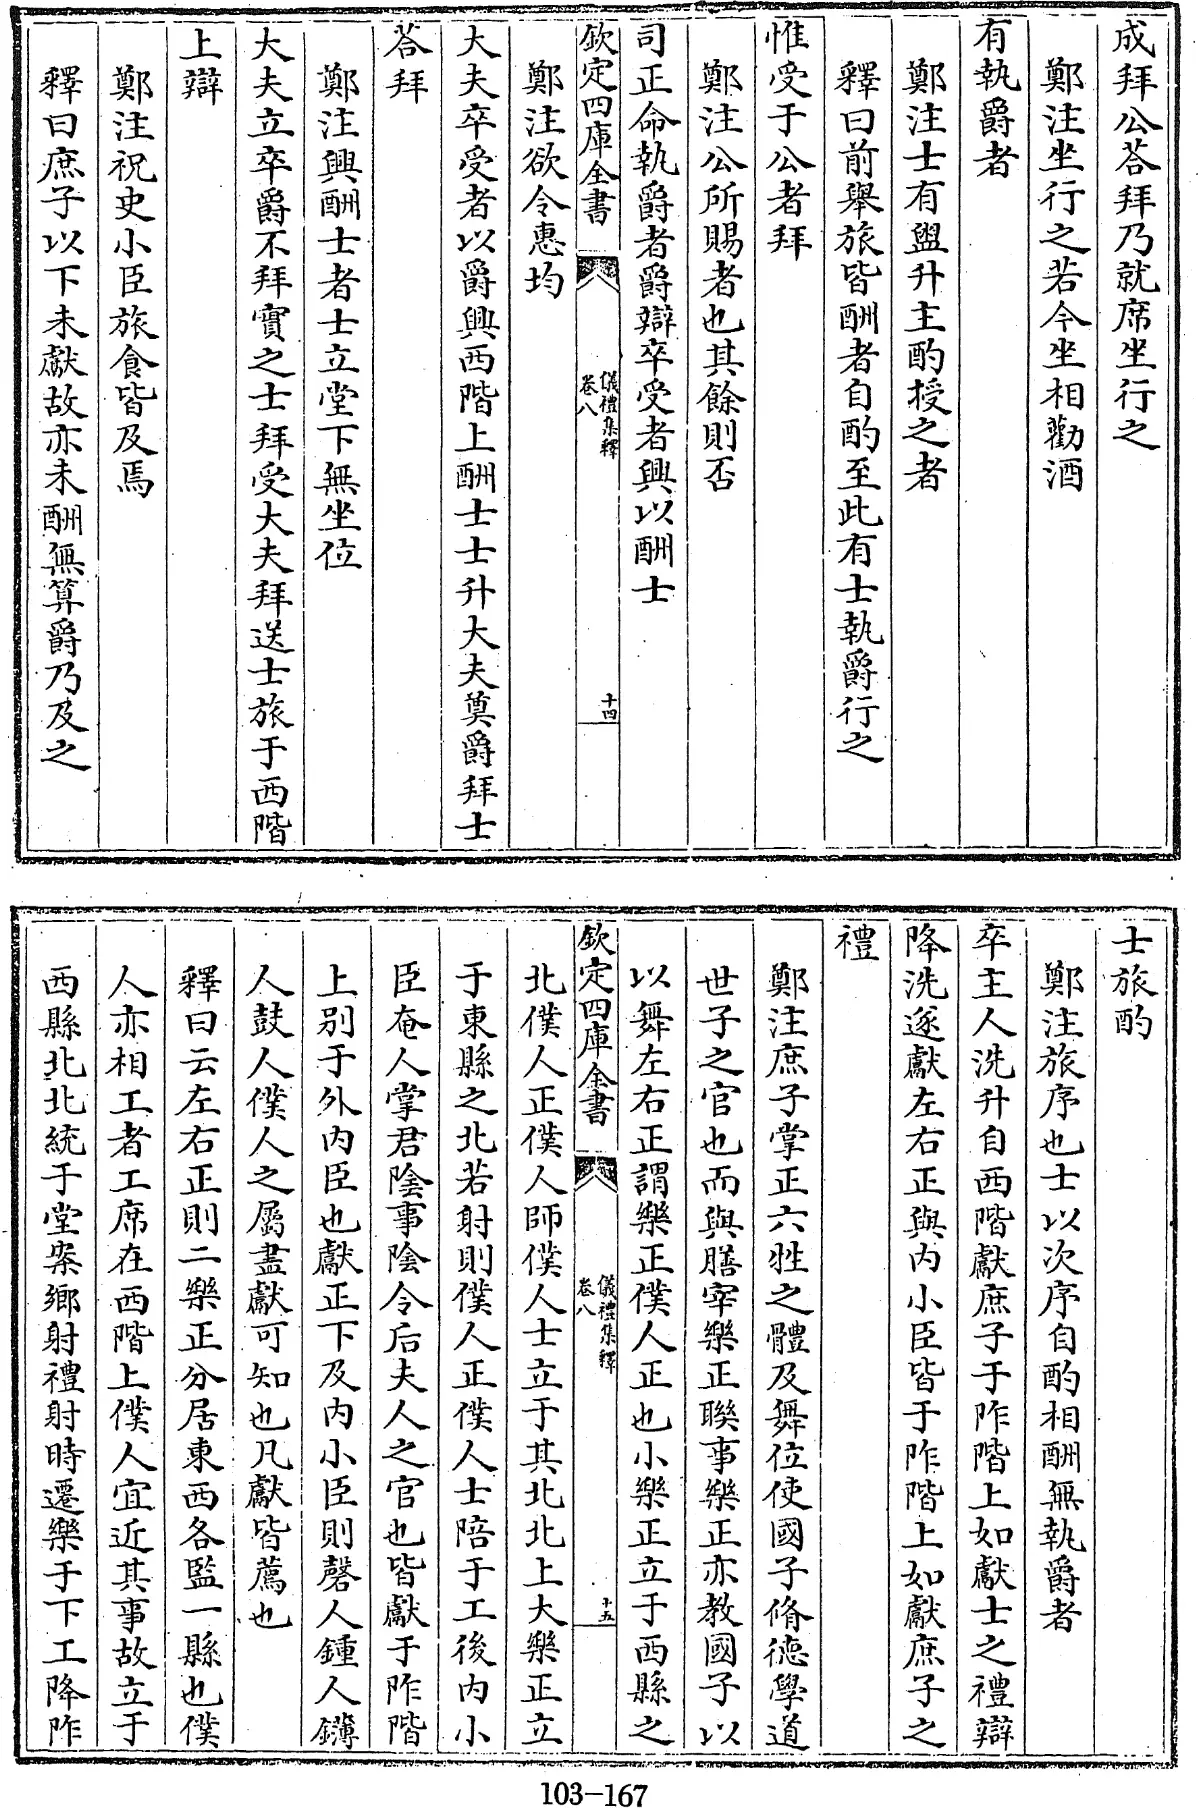 成拜公荅拜乃就席坐行之
鄭注坐行之若今坐相勸酒
有執爵者
鄭注士有盥升主酌授之者
釋曰前舉旅皆酬者自酌至此有士執爵行之
惟受于公者拜
鄭注公所賜者也其餘則否
司正命執爵者爵辯卒受者興以酬士
欽定四庫全書
儀禮集釋
卷八
十四
鄭注欲令惠均
大夫卒受者以爵興西階上酬士士升大夫奠爵拜士
荅拜
鄭注興酬士者士立堂下無坐位
大夫立卒爵不拜實之士拜受大夫拜送士旅于西階
上辯
鄭注祝史小臣旅食皆及焉
釋曰庶子以下未獻故亦未酬無算爵乃及之
士旅酌
鄭注旅序也士以次序自酌相酬無執爵者
卒主人洗升自西階獻庶子于阼階上如獻士之禮辯
降洗遂獻左右正與内小臣皆于阼階上如獻庶子之
禮
鄭注庶子掌正六牲之體及舞位使國子脩德學道
世子之官也而與膳宰樂正聯事樂正亦教國子以
以舞左右正謂樂正僕人正也小樂正立于西縣之
欽定四庫全書
儀禮集釋
卷八
十五
北僕人正僕人師僕人士立于其北北上大樂正立
于東縣之北若射則僕人正僕人士陪于工後内小
臣奄人掌君隂事隂令后夫人之官也皆獻于阼階
上別于外内臣也獻正下及内小臣則磬人鍾人鑮
人鼓人僕人之屬盡獻可知也凡獻皆薦也
釋曰云左右正則二樂正分居東西各監一縣也僕
人亦相工者工席在西階上僕人宜近其事故立于
西縣北北統于堂案鄉射禮射時遷樂于下工降阼
103-167